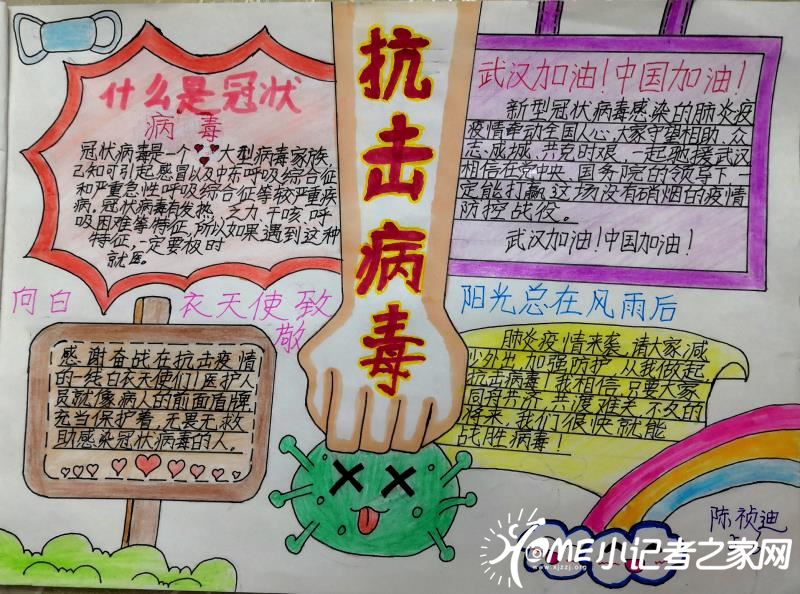 抗击病毒
什么是冠状
病毒
冠状病毒是一个大型病毒家族
已知可引起感冒以及中布呼吸综合征
和严重急性呼吸综合征等较严重疾
病。冠状病毒有发热、乏力、干咳、呼
吸困难等特征,所以如果遇到这种
特征,一定要极时
就医。
武汉加油!中国加油!
新型冠状病毒感染的肺炎疫
疫情牵动全国人心,大家守望相助、众
志成城、共克时艰,一起驰援武汉
相信在党中央、国务院的领导下一
定能打赢这场没有硝烟的疫情
防控战役。
武汉加油!中国加油!
向白衣天使致
敬
感谢奋战在抗击疫情
的一线白衣天使们!医护人
员就像病人的前面盾牌,
充当保护着,无畏无救
助感染冠状病毒的人。
阳光总在风雨后
肺炎疫情来袭,请大家减
少外出,加强防护,从我做起
抗击病毒!我相信,只要大家
同舟共济,共渡难关,不久的
将来,我们很快就能
战胜病毒!
陈祯迪
HOME小记者之家网
www.xjzzj.org